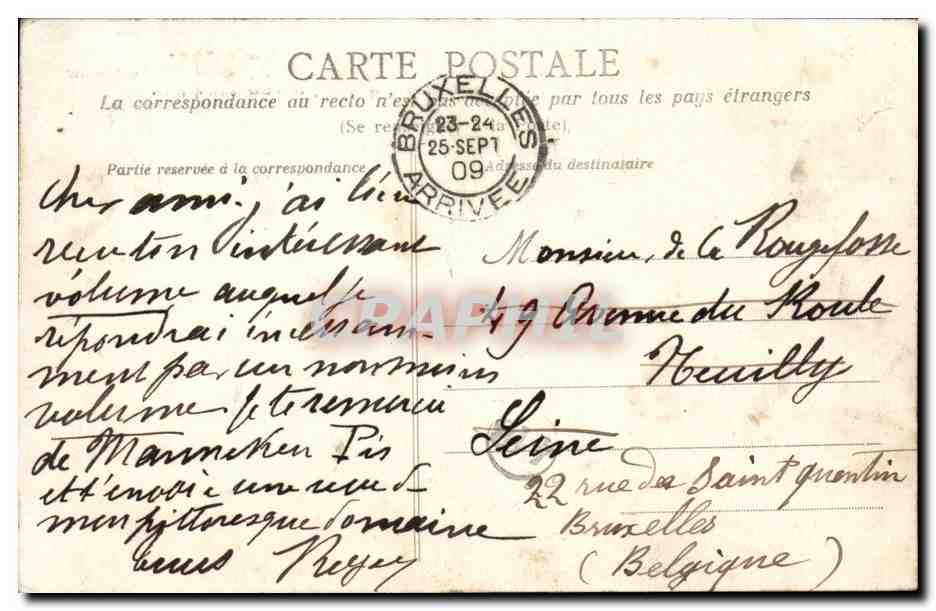 CARTE POSTALE
La correspondance au recto n'est pas acceptée par tous les pays étrangers
(Se re
Partie réservée à la correspondance
Adresse du destinataire
BRUXELLES
23-24
25·SEPT
09
ARRIVEE
Cher ami. j'ai bien
reçu ton intéressant
volume auquel je
répondrai incessam-
ment par un non moins
volume je te remercie
de Manneken Pis
et t'envoie une vue d
mon pittoresque domaine
Monsieur de la Rougefosse
49 Avenue du Roule
Neuilly
Seine
22 rue de Saint quentin
Bruxelles
(Belgique)
CARAPHIL